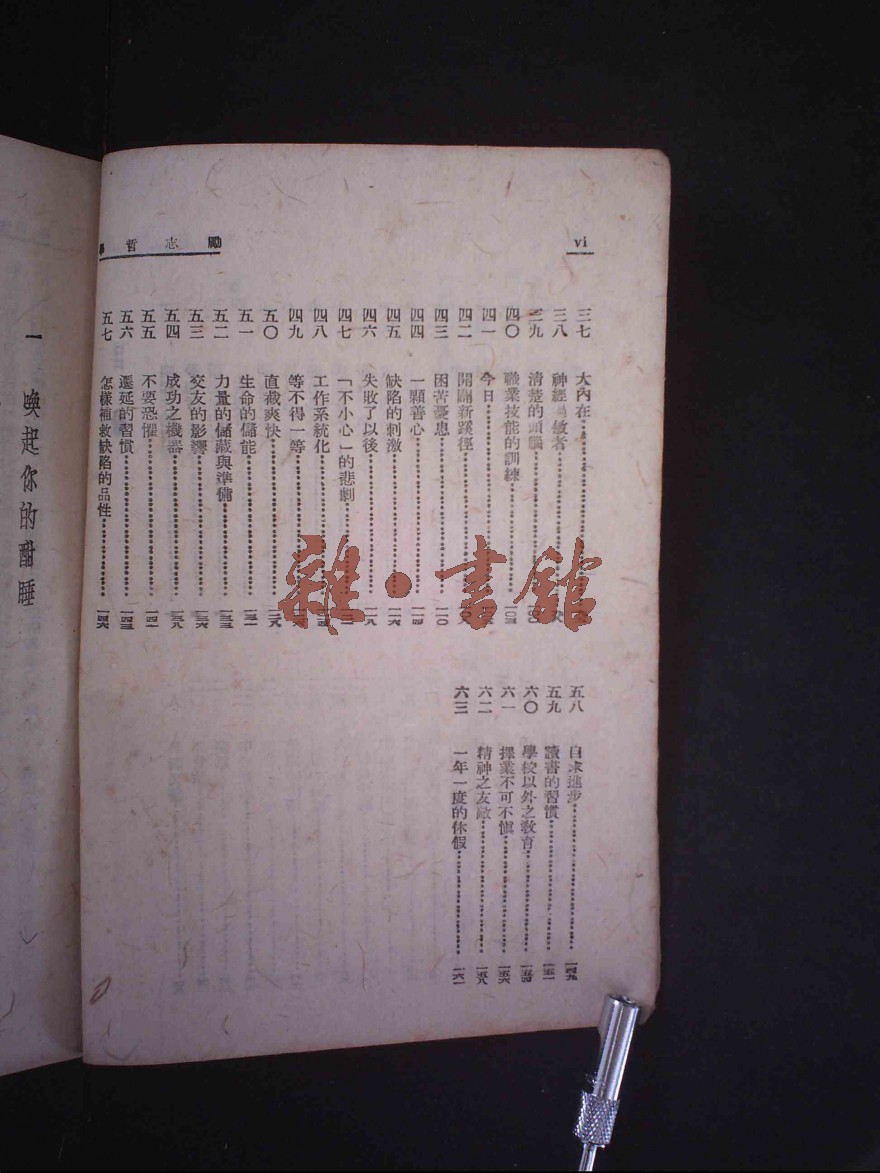 vi
勵志哲學
三七 大內在
三八 神經過敏者
三九 清楚的頭腦
四〇 職業技能的訓練 一〇三
四一 今日
四二 開闢新蹊徑
四三 困苦憂患 一一〇
四四 一顆善心 一一四
四五 缺陷的刺激 一一六
四六 失敗了以後 一一八
四七 「不小心」的悲劇
四八 工作系統化
四九 等不得一等
五〇 直截爽快 一二八
五一 生命的儲能 一三一
五二 力量的儲藏與準備 一三三
五三 交友的影響 一三六
五四 成功之機器 一三八
五五 不要恐懼 一四一
五六 遷延的習慣 一四三
五七 怎樣補救缺陷的品性 一四六
五八 自求進步 一四九
五九 讀書的習慣 一五一
六〇 學校以外之教育 一五四
六一 擇業不可不慎 一五六
六二 精神之友敵 一五八
六三 一年一度的休假 一六一
一 喚起你的酣睡
雜·書館